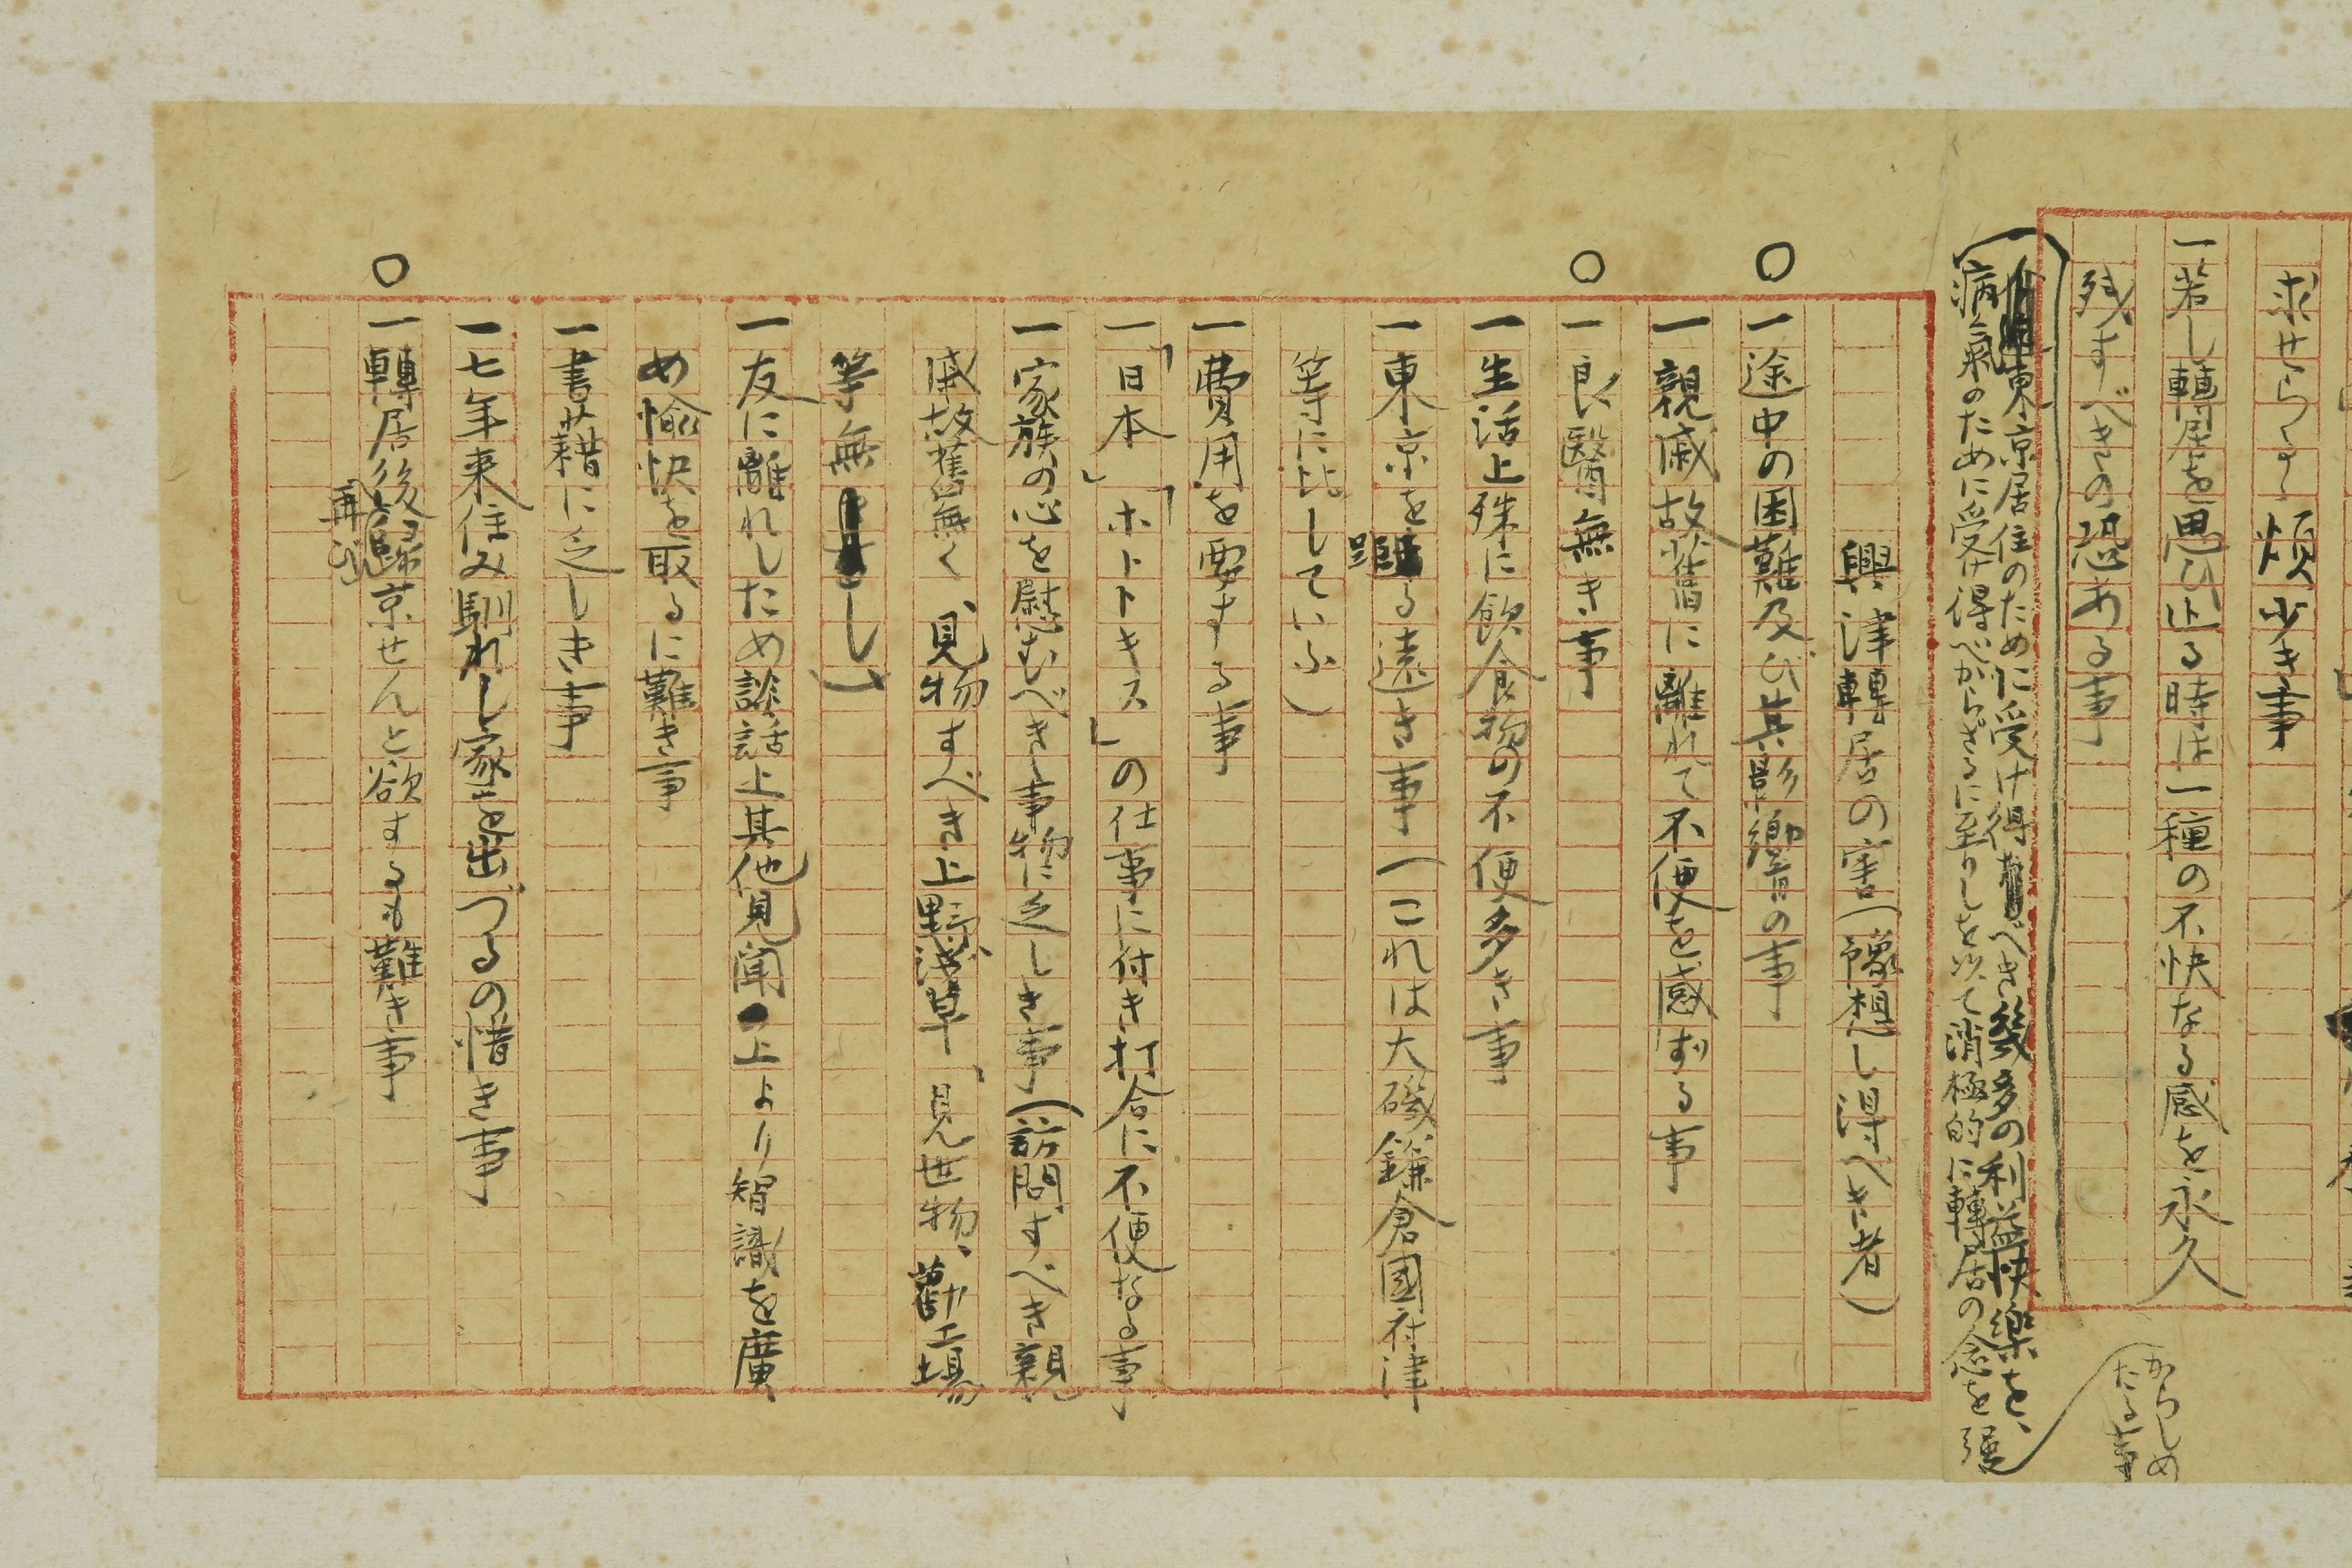 求せらるゝ煩少き事
一若し轉居を思ひ止る時は一種の不快なる感を永久
残すべきの恐ある事
東京居住のために受け得べき幾多の利益快樂を、
病氣のために受け得べからざるに至りしを以て消極的に轉居の念を强
からしめ
たる事
興津轉居の害(豫想し得べき者)
○一途中の困難及び其影響の事
一親戚故舊に離れて不便を感ずる事
○一良醫無き事
一生活上殊に飲食物の不便多き事
一東京を距る遠き事(これは大磯鎌倉國府津
等に比していふ)
一費用を要する事
一「日本」「ホトトキス」の仕事に付き打合に不便なる事
一家族の心を慰むべき事物に乏しき事(訪問すべき親
戚故舊無く、見物すべき上野淺草、見世物、勸工場
等無し)
一友に離れしため談話上其他見聞上より智識を廣
め愉快を取るに難き事
一書籍に乏しき事
一七年来住み馴れし家を出づるの惜き事
○一轉居後再び歸京せんと欲するも難き事